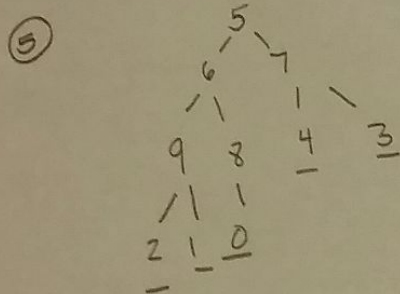 5
5
6 7
9 8 4 3
2 1 0